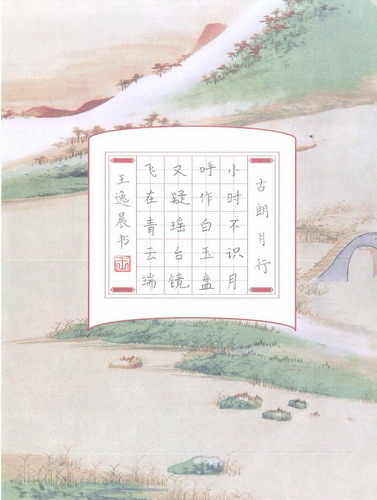 古朗月行
小时不识月
呼作白玉盘
又疑瑶台镜
飞在青云端
王逸晨书